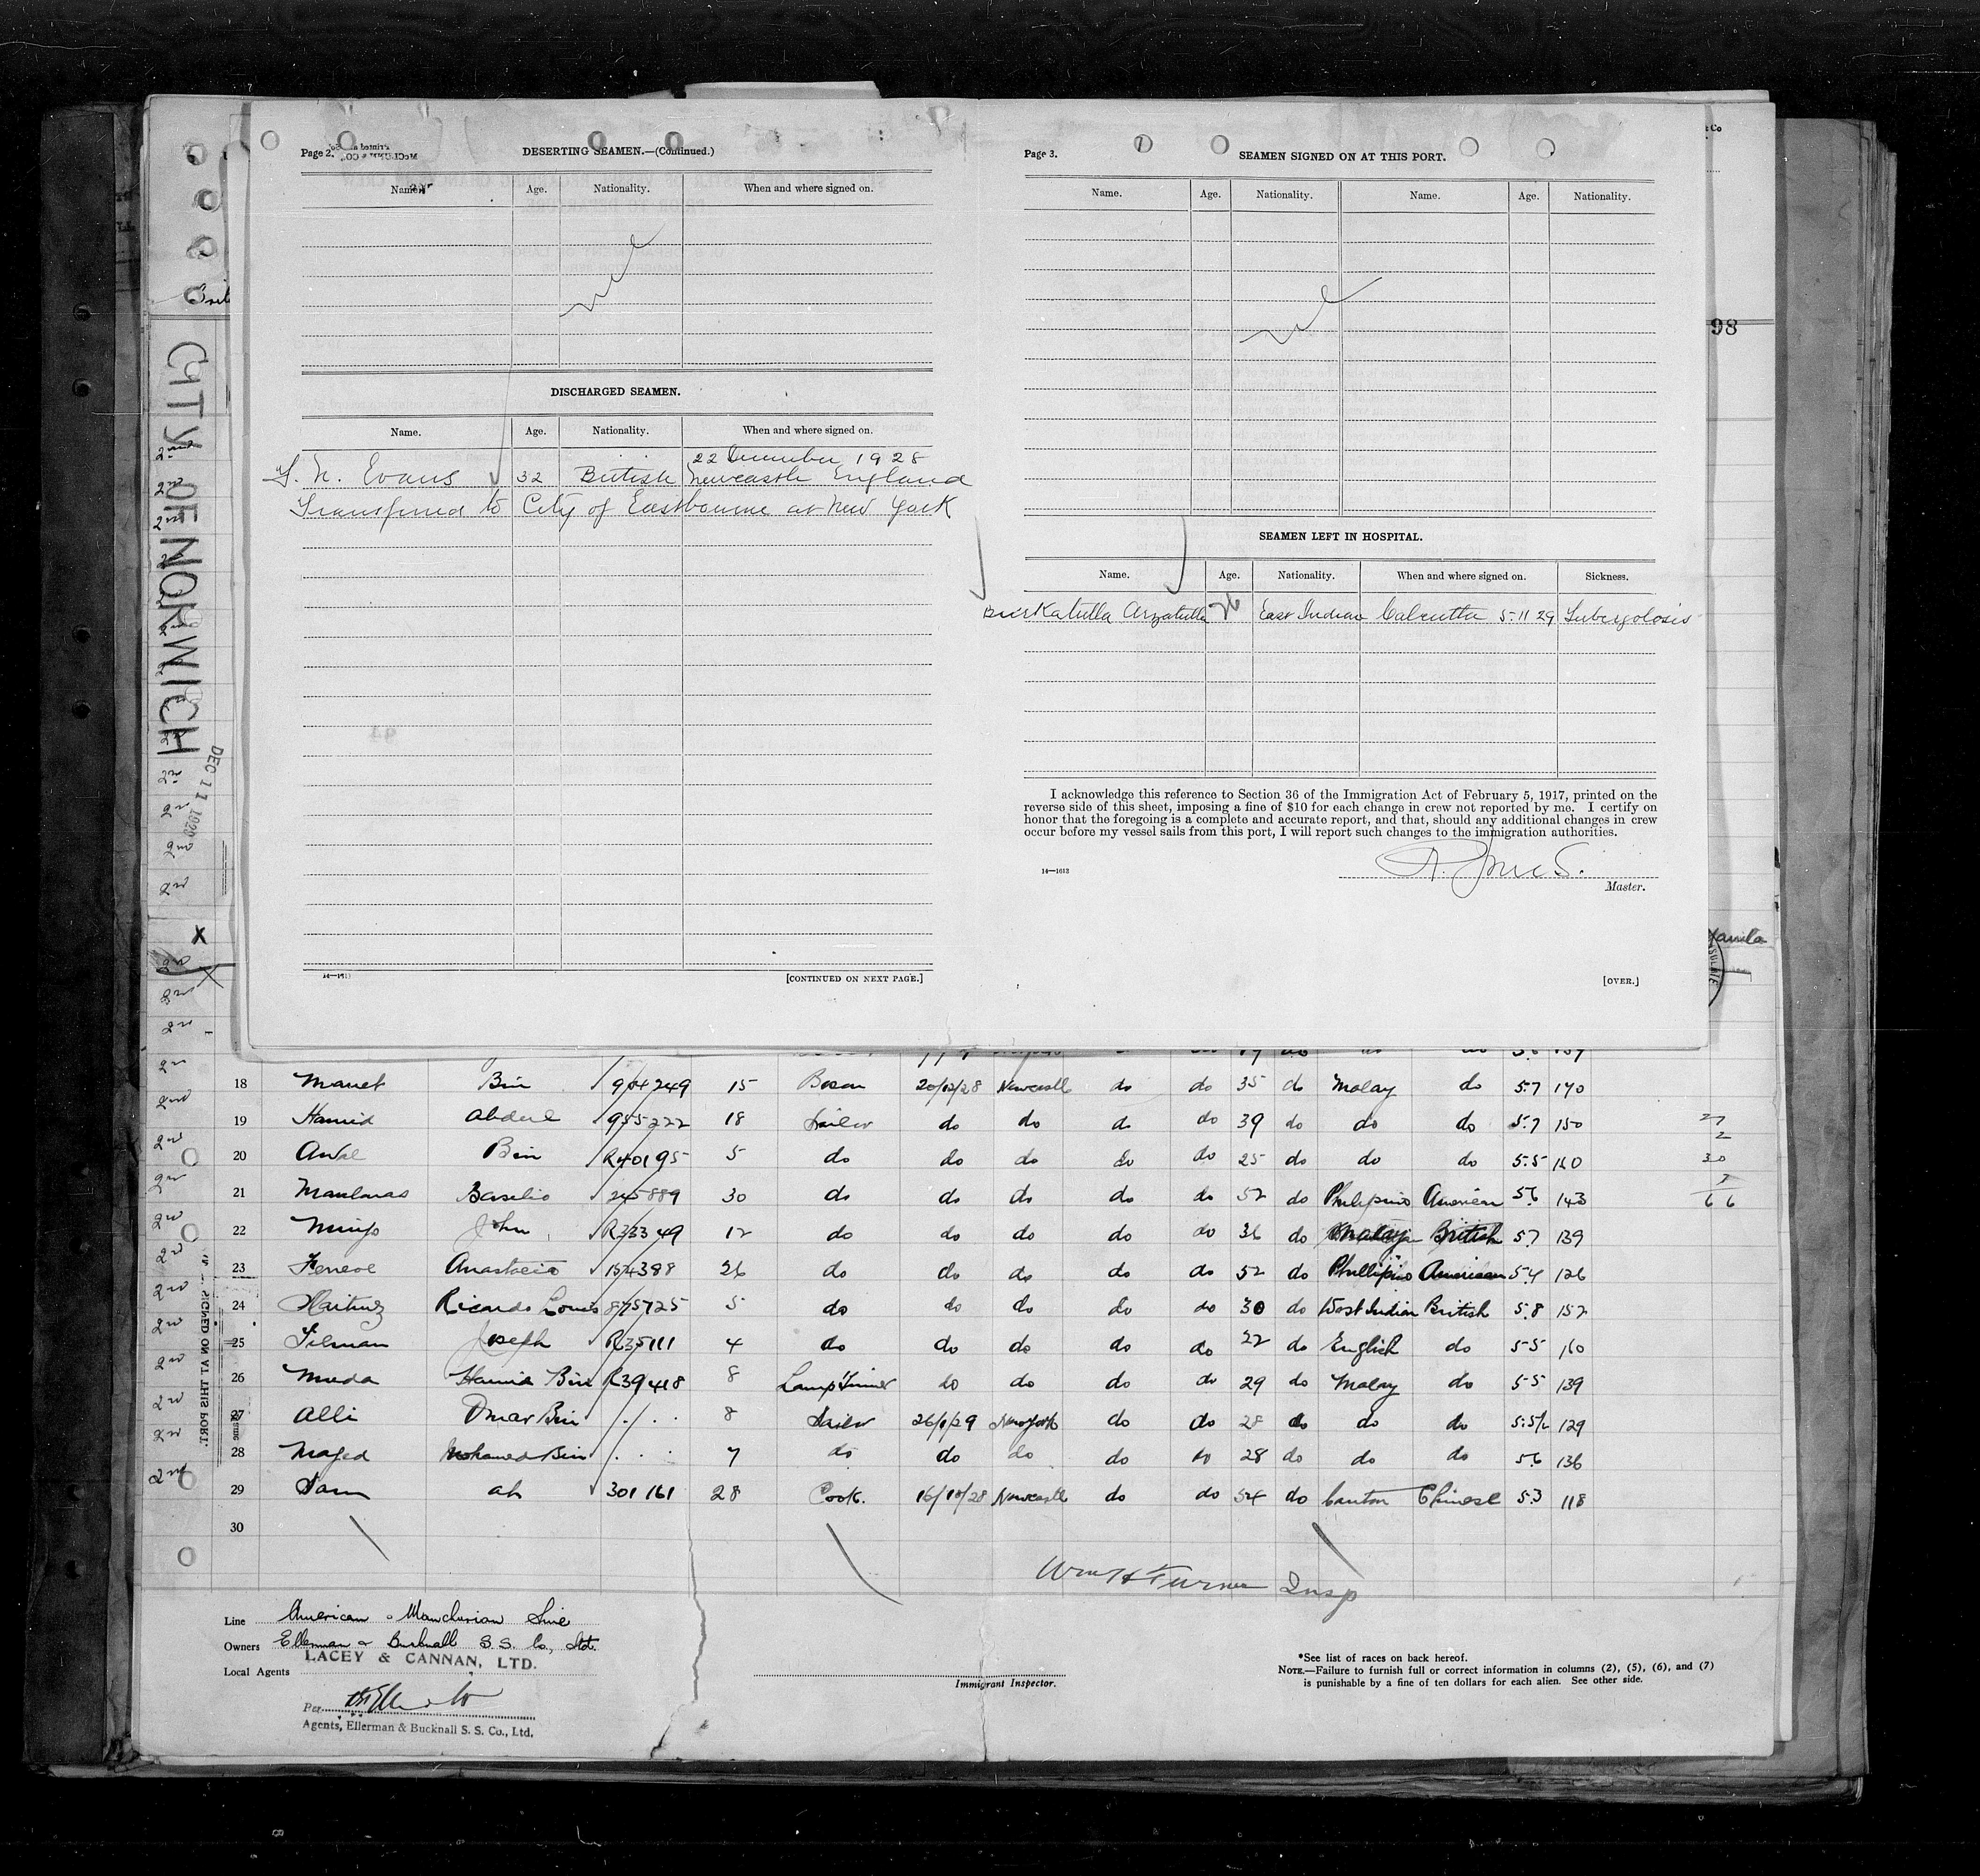 Page 2.
DESERTING SEAMEN.—(Continued.)
Name. Age. Nationality. When and where signed on.
nil
DISCHARGED SEAMEN.
Name. Age. Nationality. When and where signed on.
22 December 1928
Evans 32 British Newcastle England
Transferred to City of Eastbourne at New York
14—1613
[CONTINUED ON NEXT PAGE.]
Page 3.
SEAMEN SIGNED ON AT THIS PORT.
Name. Age. Nationality. Name. Age. Nationality.
nil
SEAMEN LEFT IN HOSPITAL.
Name. Age. Nationality. When and where signed on. Sickness.
Burkatulla Arzatulla 26 East Indian Calcutta 5.11 29 Tubergolosis
I acknowledge this reference to Section 36 of the Immigration Act of February 5, 1917, printed on the
reverse side of this sheet, imposing a fine of $10 for each change in crew not reported by me. I certify on
honor that the foregoing is a complete and accurate report, and that, should any additional changes in crew
occur before my vessel sails from this port, I will report such changes to the immigration authorities.
14—1613
Master.
[OVER.]
CITY OF NORWICH
DEC 11
98
18 Mamet Bin 904249 15 Bosun 20/12/28 Newcastle do do 35 do Malay do 5.7 170
19 Hamid Abdul 955222 18 Sailor do do do do 39 do do do 5.7 150
20 Bin R40195 5 do do do do do 25 do do do 5.5 160
21 Basilio 245889 30 do do do do do 52 do Philipino American 5.6 143
22 John R33349 12 do do do do do 36 do Malay British 5.7 139
23 154388 26 do do do do do 52 do Phillipino American 5.4 126
24 Ricardo Louis 875725 5 do do do do do 30 do West Indian British 5.8 152
25 Joseph R35111 4 do do do do do 22 do English do 5.5 160
26 Muda Hamid Bin R39418 8 Lamp Trimmer do do do do 29 do Malay do 5.5 139
27 Alli Omar Bin 8 Sailor 26/1/29 New York do do 28 do do do 5.5½ 129
28 Majed Mohamed Bin 7 do do do do do 28 do do do 5.6 136
29 Sam ah 301161 28 Cook. 16/10/28 Newcastle do do 54 do Canton Chinese 5.3 118
30
27
2
30
7
66
SIGNED ON AT THIS PORT.
Wm H Turner Insp
Line American - Manchurian Line
Owners Ellerman & Bucknall S.S. Co, Ltd.
LACEY & CANNAN, LTD.
Local Agents
Per
Agents, Ellerman & Bucknall S. S. Co., Ltd.
Immigrant Inspector.
*See list of races on back hereof.
NOTE.—Failure to furnish full or correct information in columns (2), (5), (6), and (7)
is punishable by a fine of ten dollars for each alien. See other side.